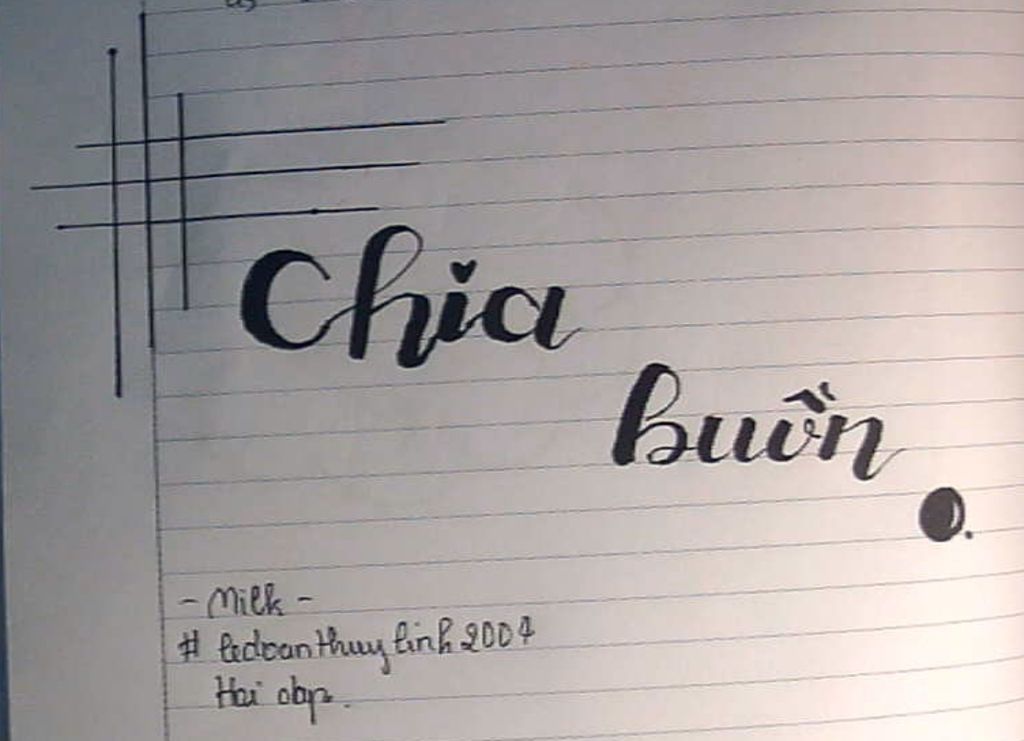 Chia
buồn
- Milk -
# ledoanthuylinh2004
Hai